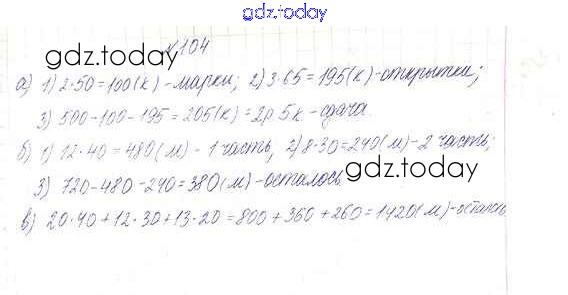 gdz.today
№104
gdz.today
а) 1) 2·50=100(к) - марки; 2) 3·65=195(к)-открытки;
3) 500-100-195=205(к)=2р 5к - сдача.
б) 1) 12·40=480(м) - 1 часть, 2) 8·30=240(м)-2 часть;
gdz.today
3) 720-480-240=380(м)-осталось
в) 20·40+12·30+13·20=800+360+260=1420(м)-осталось